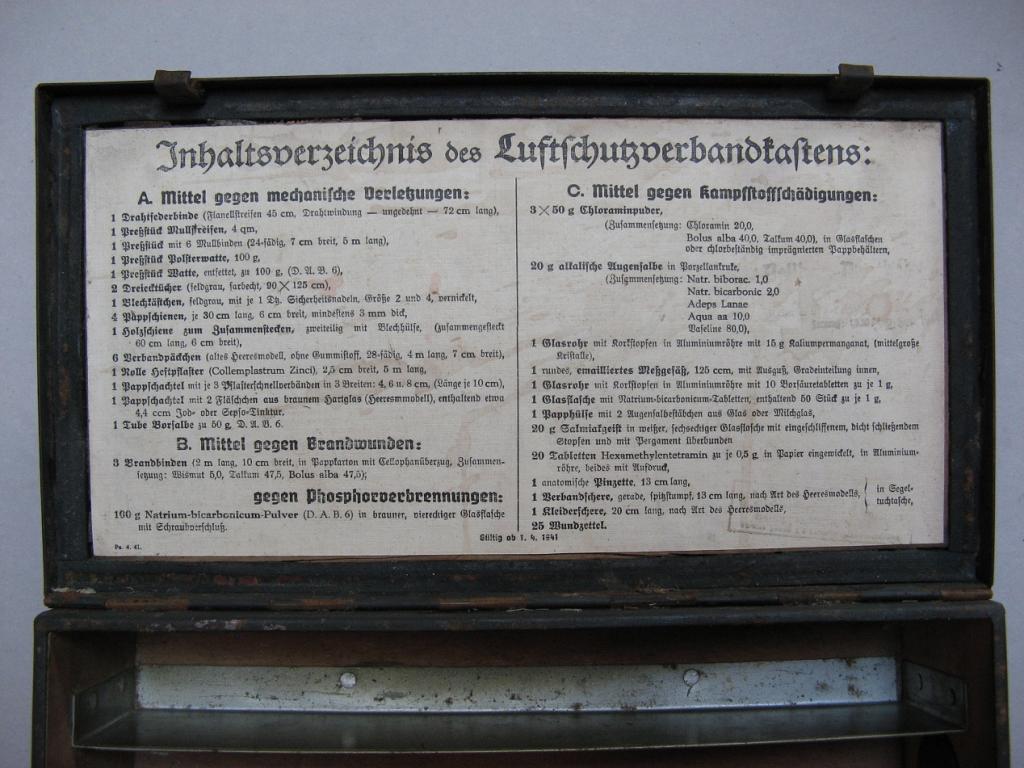 Inhaltsverzeichnis des Luftschutzverbandkastens:
A. Mittel gegen mechanische Verletzungen:
1 Drahtsederbinde (Flanellstreifen 45 cm, Drahtwindung — ungedehnt — 72 cm lang),
1 Preßstück Mullstreifen, 4 qm,
1 Preßstück mit 6 Mullbinden (24-fädig, 7 cm breit, 5 m lang),
1 Preßstück Polsterwatte, 100 g,
1 Preßstück Watte, entfettet, zu 100 g, (D. A. B. 6),
2 Dreiecktücher (feldgrau, farbecht, 90 × 125 cm),
1 Blechkästchen, feldgrau, mit je 1 Dtz. Sicherheitsnadeln, Größe 2 und 4, vernickelt,
4 Pappschienen, je 30 cm lang, 6 cm breit, mindestens 3 mm dick,
1 Holzschiene zum Zusammenstecken, zweiteilig mit Blechhülse, (zusammengesteckt
60 cm lang, 6 cm breit),
6 Verbandpäckchen (altes Heeresmodell, ohne Gummistoff, 28-fädig, 4 m lang, 7 cm breit),
1 Rolle Heftpflaster (Collemplastrum Zinci), 2,5 cm breit, 5 m lang,
1 Pappschachtel mit je 3 Pflasterschnellverbänden in 3 Breiten: 4, 6 u. 8 cm, (Länge je 10 cm),
1 Pappschachtel mit 2 Fläschchen aus braunem Hartglas (Heeresmmodell), enthaltend etwa
4,4 ccm Jod- oder Sepso-Tinktur.
1 Tube Borsalbe zu 50 g, D. A. B. 6.
B. Mittel gegen Brandwunden:
3 Brandbinden (2 m lang, 10 cm breit, in Pappkarton mit Cellophanüberzug, Zusammen-
setzung: Wismut 5,0, Talkum 47,5, Bolus alba 47,5);
gegen Phosphorverbrennungen:
100 g Natrium-bicarbonicum-Pulver (D. A. B. 6) in brauner, viereckiger Glasflasche
mit Schraubverschluß.
Pa. 4. 41.
C. Mittel gegen Kampfstoffschädigungen:
3 × 50 g Chloraminpuder,
(Zusammensetzung: Chloramin 20,0,
Bolus alba 40,0, Talkum 40,0), in Glasflaschen
oder chlorbeständig imprägnierten Pappbehältern,
20 g alkalische Augensalbe in Porzellankruke,
(Zusammensetzung: Natr. biborac. 1,0
Natr. bicarbonic 2,0
Adeps Lanae
Aqua aa 10,0
Vaseline 80,0),
1 Glasrohr mit Korkstopfen in Aluminiumröhre mit 15 g Kaliumpermanganat, (mittelgroße
Kristalle),
1 rundes, emailliertes Meßgefäß, 125 ccm, mit Ausguß, Gradeinteilung innen,
1 Glasrohr mit Korkstopfen in Aluminiumröhre mit 10 Borsäuretabletten zu je 1 g,
1 Glasflasche mit Natrium-bicarbonicum-Tabletten, enthaltend 50 Stück zu je 1 g,
1 Papphülse mit 2 Augensalbestäbchen aus Glas oder Milchglas,
20 g Salmiakgeist in weißer, sechseckiger Glasflasche mit eingeschliffenem, dicht schließendem
Stopfen und mit Pergament überbunden
20 Tabletten Hexamethylentetramin zu je 0,5 g, in Papier eingewickelt, in Aluminium-
röhre, beides mit Aufdruck,
1 anatomische Pinzette, 13 cm lang,
1 Verbandschere, gerade, spitzstumpf, 13 cm lang, nach Art des Heeresmodells,
1 Kleiderschere, 20 cm lang, nach Art des Heeresmodells,
in Segel-
tuchtasche,
25 Wundzettel.
Gültig ab 1. 4. 1941